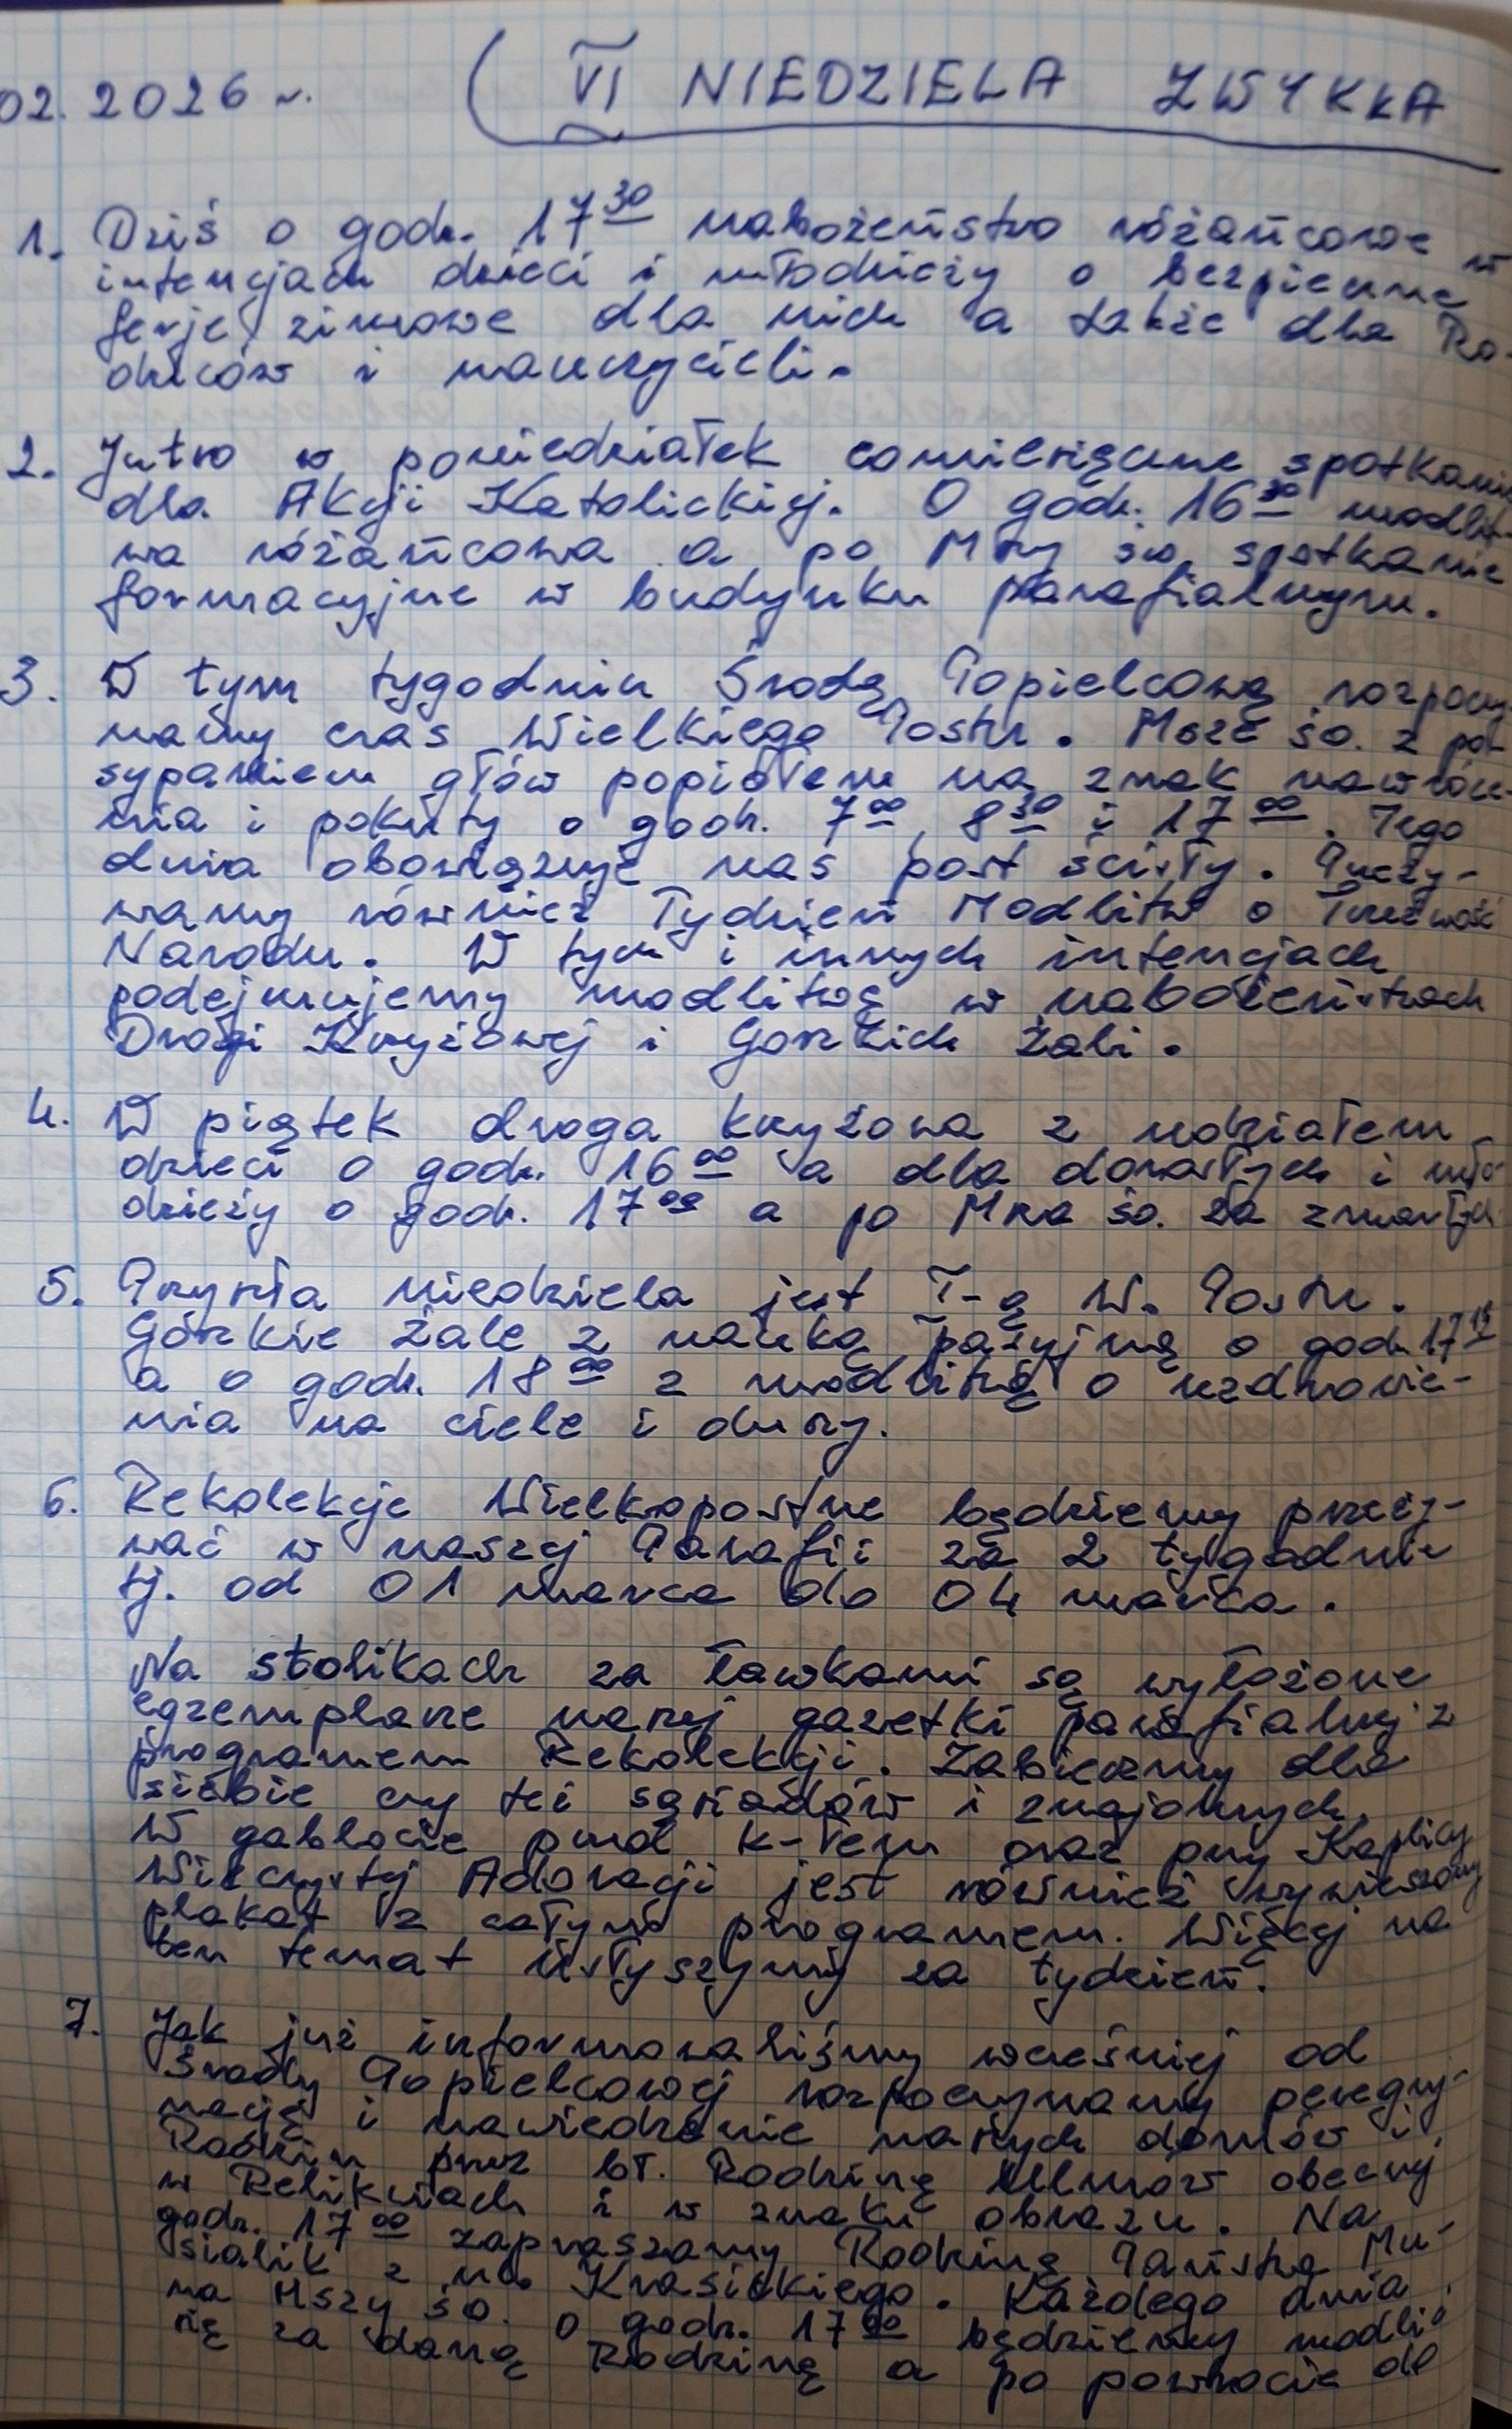 02.2026 r. VI NIEDZIELA ZWYKŁA
1. Dziś o godz. 17 30 nabożeństwo różańcowe w
intencjach dzieci i młodzieży o bezpieczne
ferje zimowe dla nich a także dla Ro-
dziców i nauczycieli.
2. Jutro w poniedziałek comiesięczne spotkanie
dla Akcji Katolickiej. O godz. 16 30 modlit-
wa różańcowa a po Mszy św. spotkanie
formacyjne w budynku parafialnym.
3. W tym tygodniu Środą Popielcową rozpoczy-
namy czas Wielkiego Postu. Msze św. z po-
sypaniem głów popiołem na znak nawróce-
nia i pokuty o godz. 7 00, 8 30 i 17 00. Tego
dnia obowiązuje nas post ścisły. Przeży-
wamy również Tydzień Modlitw o Trzeźwość
Narodu. W tych i innych intencjach
podejmujemy modlitwę w nabożeństwach
Drogi Krzyżowej i Gorzkich Żali.
4. W piątek droga krzyżowa z udziałem
dzieci o godz. 16 00 a dla dorosłych i mło-
dzieży o godz. 17 00 a po Msza św. za zmarłych
5. Przyszła niedziela jest I-ą W. Postu.
Górzkie żale z nauką pasyjną o godz. 17 15
a o godz. 18 00 z modlitwą o uzdrowie-
nia na ciele i duszy.
6. Rekolekcje Wielkopostne będziemy przeży-
wać w naszej Parafii za 2 tygodnie
tj. od 01 marca do 04 marca.
Na stolikach za ławkami są wyłożone
egzemplarze naszej gazetki parafialnej z
programem Rekolekcji. Zabierzmy dla
siebie czy też sąsiadów i znajomych.
W gablocie przed k-łem oraz przy Kaplicy
Wieczystej Adoracji jest również wywieszony
plakat z całym programem. Więcej na
ten temat usłyszymy za tydzień.
7. Jak już informowaliśmy wcześniej od
Środy Popielcowej rozpoczynamy peregry-
nację i nawiedzenie naszych domów i
Rodzin przez bł. Rodzinę Ulmów obecnej
w Relikwiach i w znaku obrazu. Na
godz. 17 00 zapraszamy Rodzinę Państwa Mu-
sialik z ul. Krasickiego. Każdego dnia
na Mszy św. o godz. 17 00 będziemy modlić
się za daną Rodzinę a po powrocie do